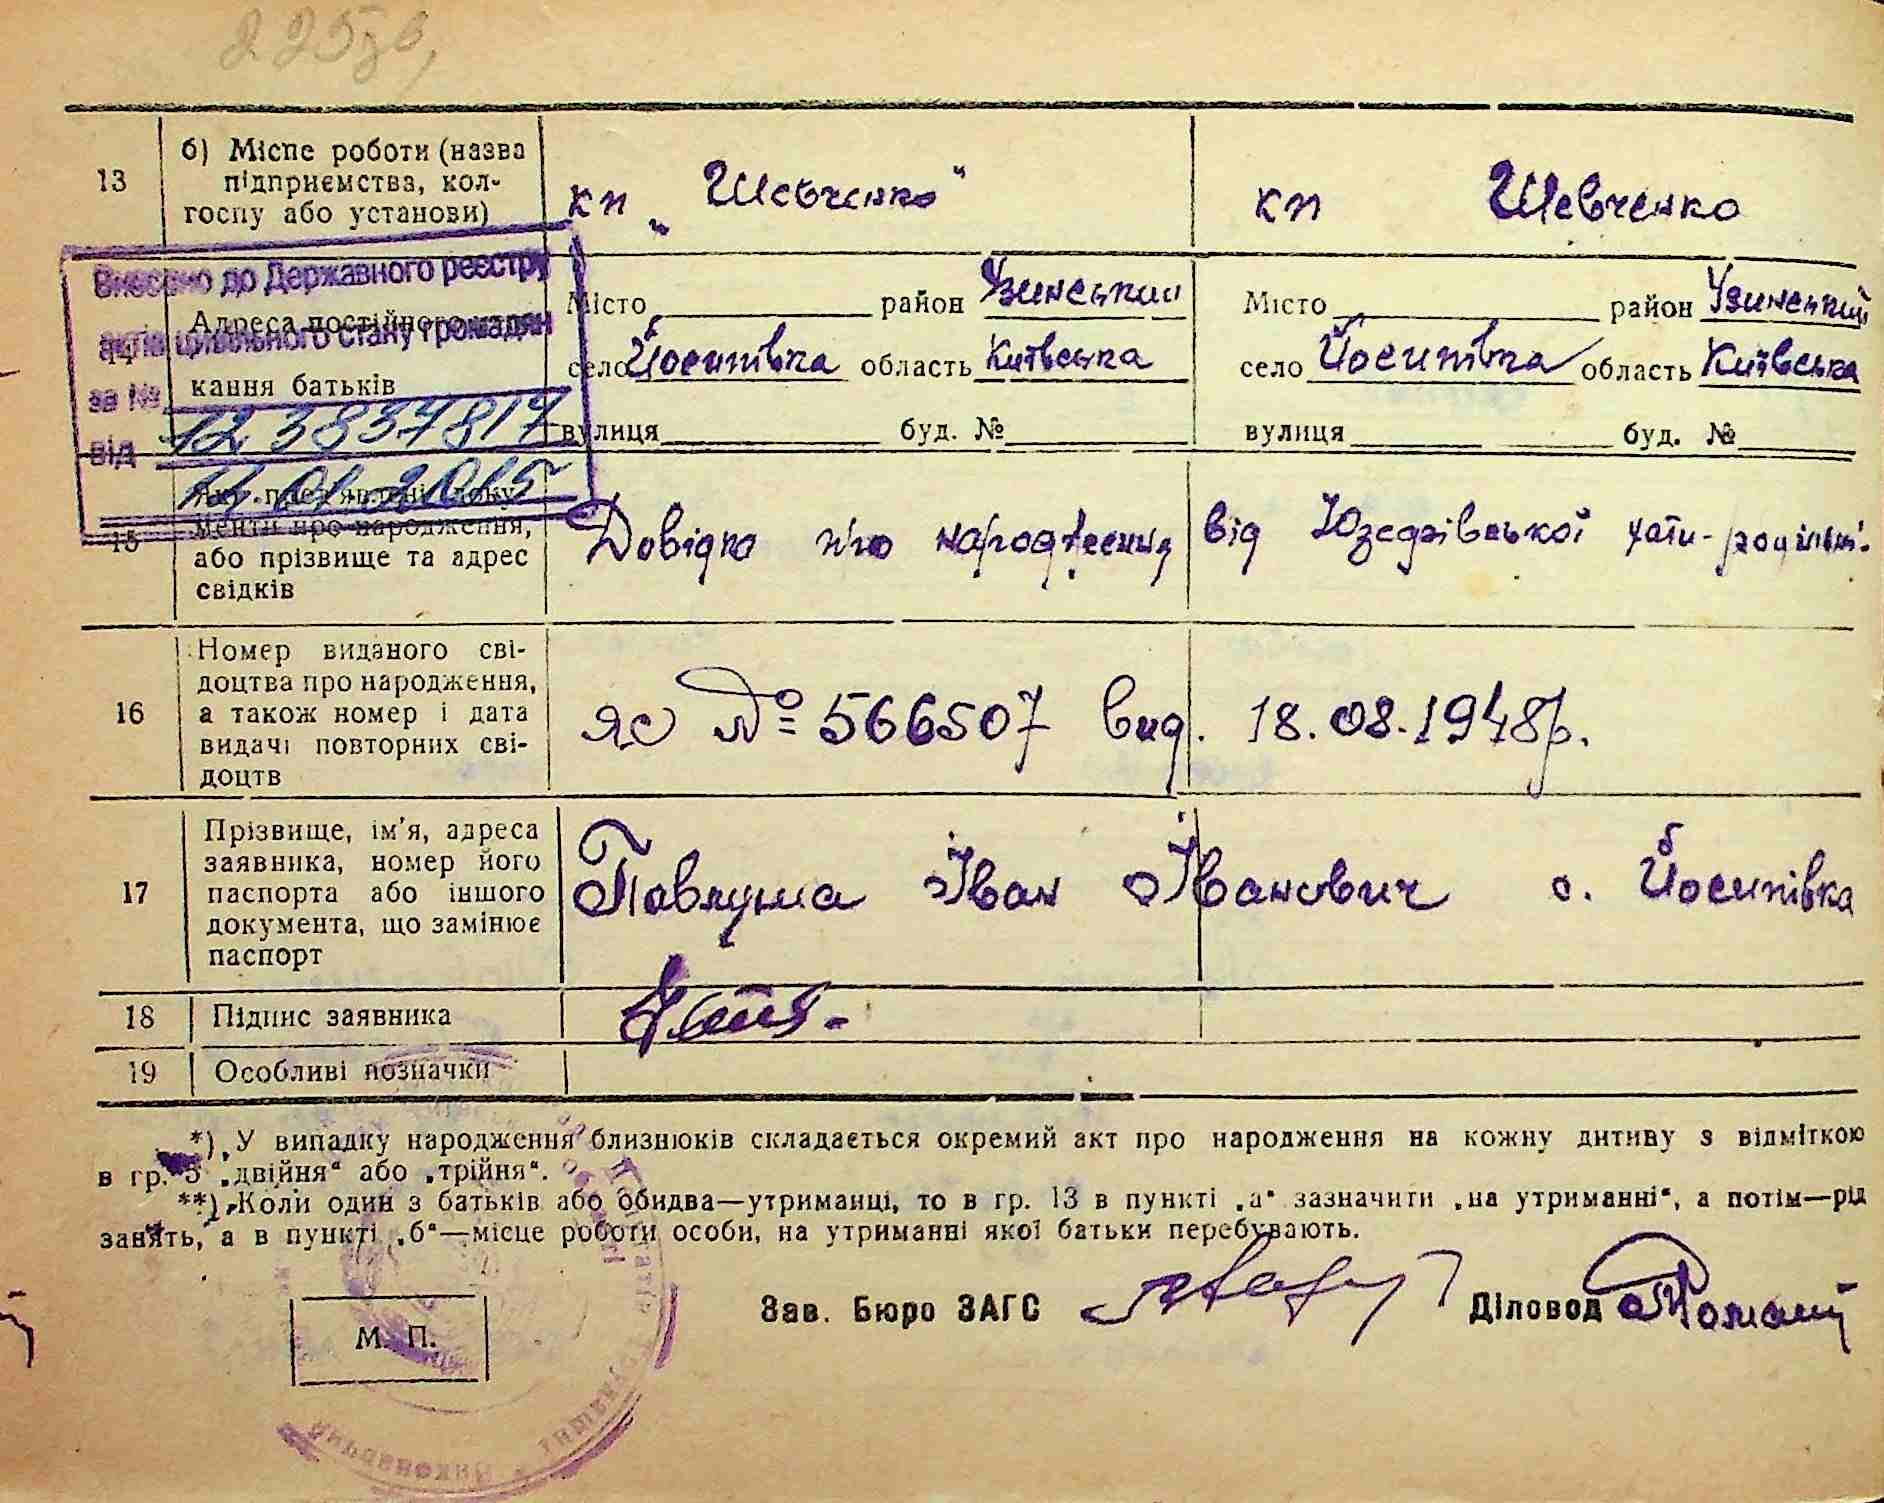 13
б) Місце роботи (назва
підприємства, кол-
госпу або установи)
кп „Шевченко“
кп Шевченко
Внесено до Державного реєстру
актів цивільного стану громадян
за №
12383 7817
від
14.01.2015
Адреса постійного
кання батьків
Місто район Узинський
село Йосипівка область Київська
вулиця буд. №
Місто район Узинський
село Йосипівка область Київська
вулиця буд. №
15
Які пред'явлені доку-
менти про народження,
або прізвище та адрес
свідків
Довідка про народження від Юзефівської хати-
16
Номер виданого сві-
доцтва про народження,
а також номер і дата
видачі повторних сві-
доцтв
ЯС № 566507 вид. 18.08.1948р.
17
Прізвище, ім'я, адреса
заявника, номер його
паспорта або іншого
документа, що замінює
паспорт
Павлуша Іван Іванович с. Йосипівка
18
Підпис заявника
19
Особливі позначки
*) У випадку народження близнюків складається окремий акт про народження на кожну дитину з відміткою
в гр. 5 „двійня“ або „трійня“.
**) Коли один з батьків або обидва—утриманці, то в гр. 13 в пункті „а“ зазначити „на утриманні“, а потім—рід
занять, а в пункті „б“—місце роботи особи, на утриманні якої батьки перебувають.
М. П.
Зав. Бюро ЗАГС
Діловод